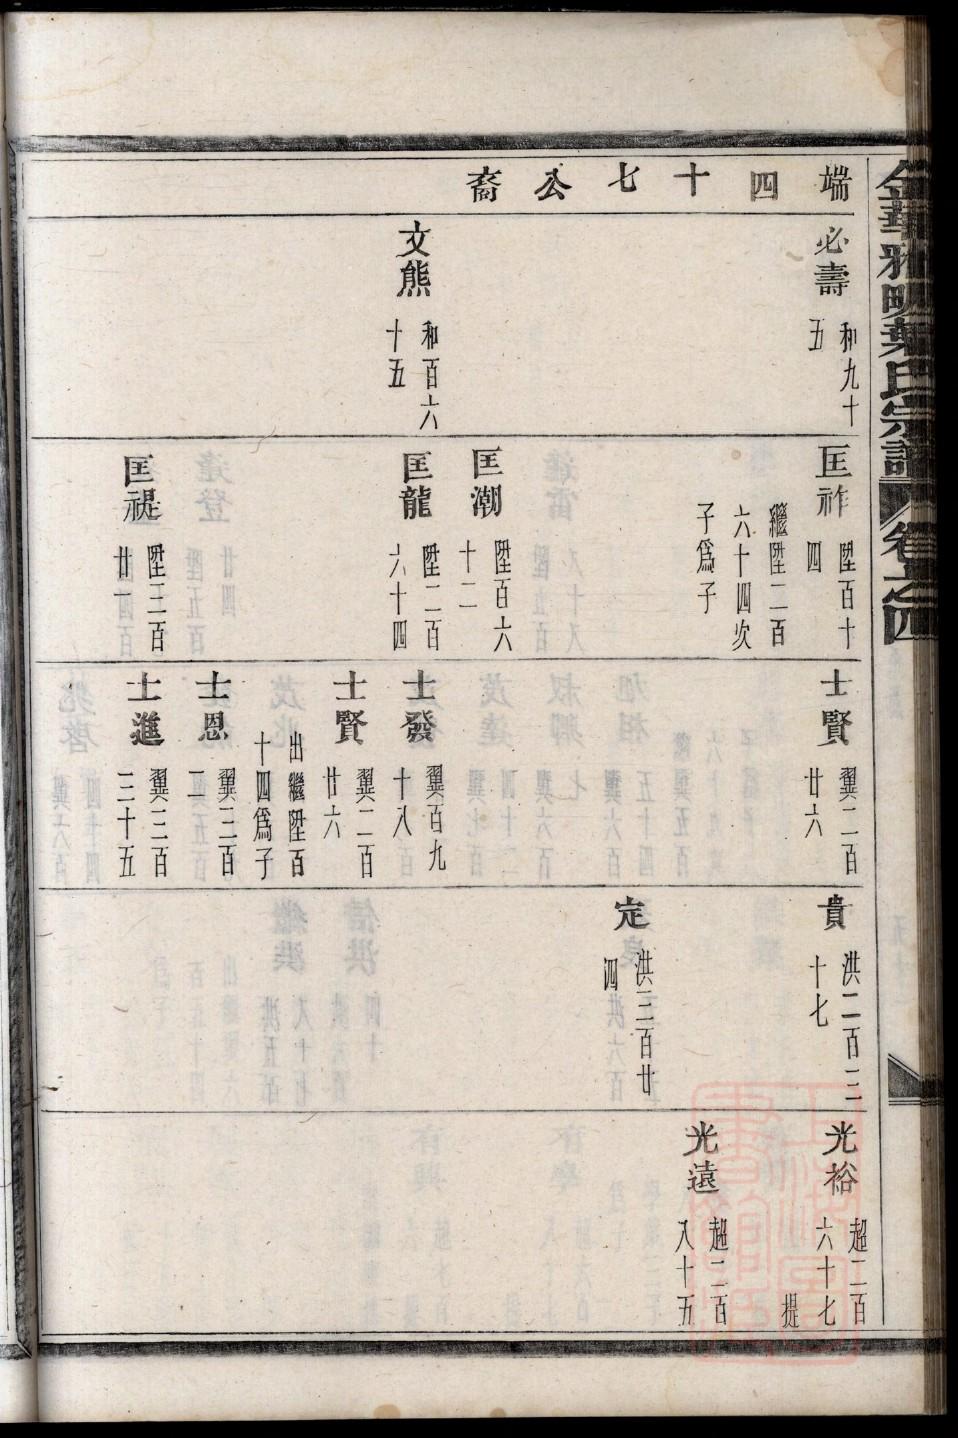 金華雅畈葉氏宗譜 卷之四
端四十七公裔
必壽 和九十五
文熊 和百六十五
匡祚 陞百十四
繼陞二百六十四次子為子
匡潮 陞百六十二
匡龍 陞二百六十四
匡禔 陞三百廿一
士賢 翼二百廿六
士發 翼百九十八
士賢 翼二百廿六
出繼陞百十四為子
士恩 翼三百二
士進 翼三百三十五
貴 洪二百三十七
定 洪三百廿四
光裕 超二百六十七
提
光遠 超二百八十五